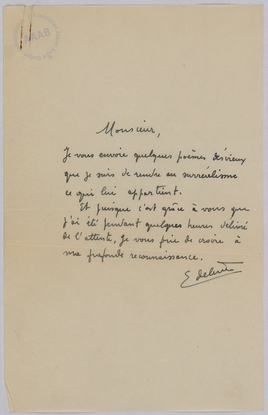 Monsieur,
Je vous envoie quelques poèmes désireux
que je suis de rendre au surréalisme
ce qui lui appartient.
Et puisque c'est grâce à vous que
j'ai été pendant quelques heures délivré
de l'attente, je vous prie de croire à
ma profonde reconnaissance.